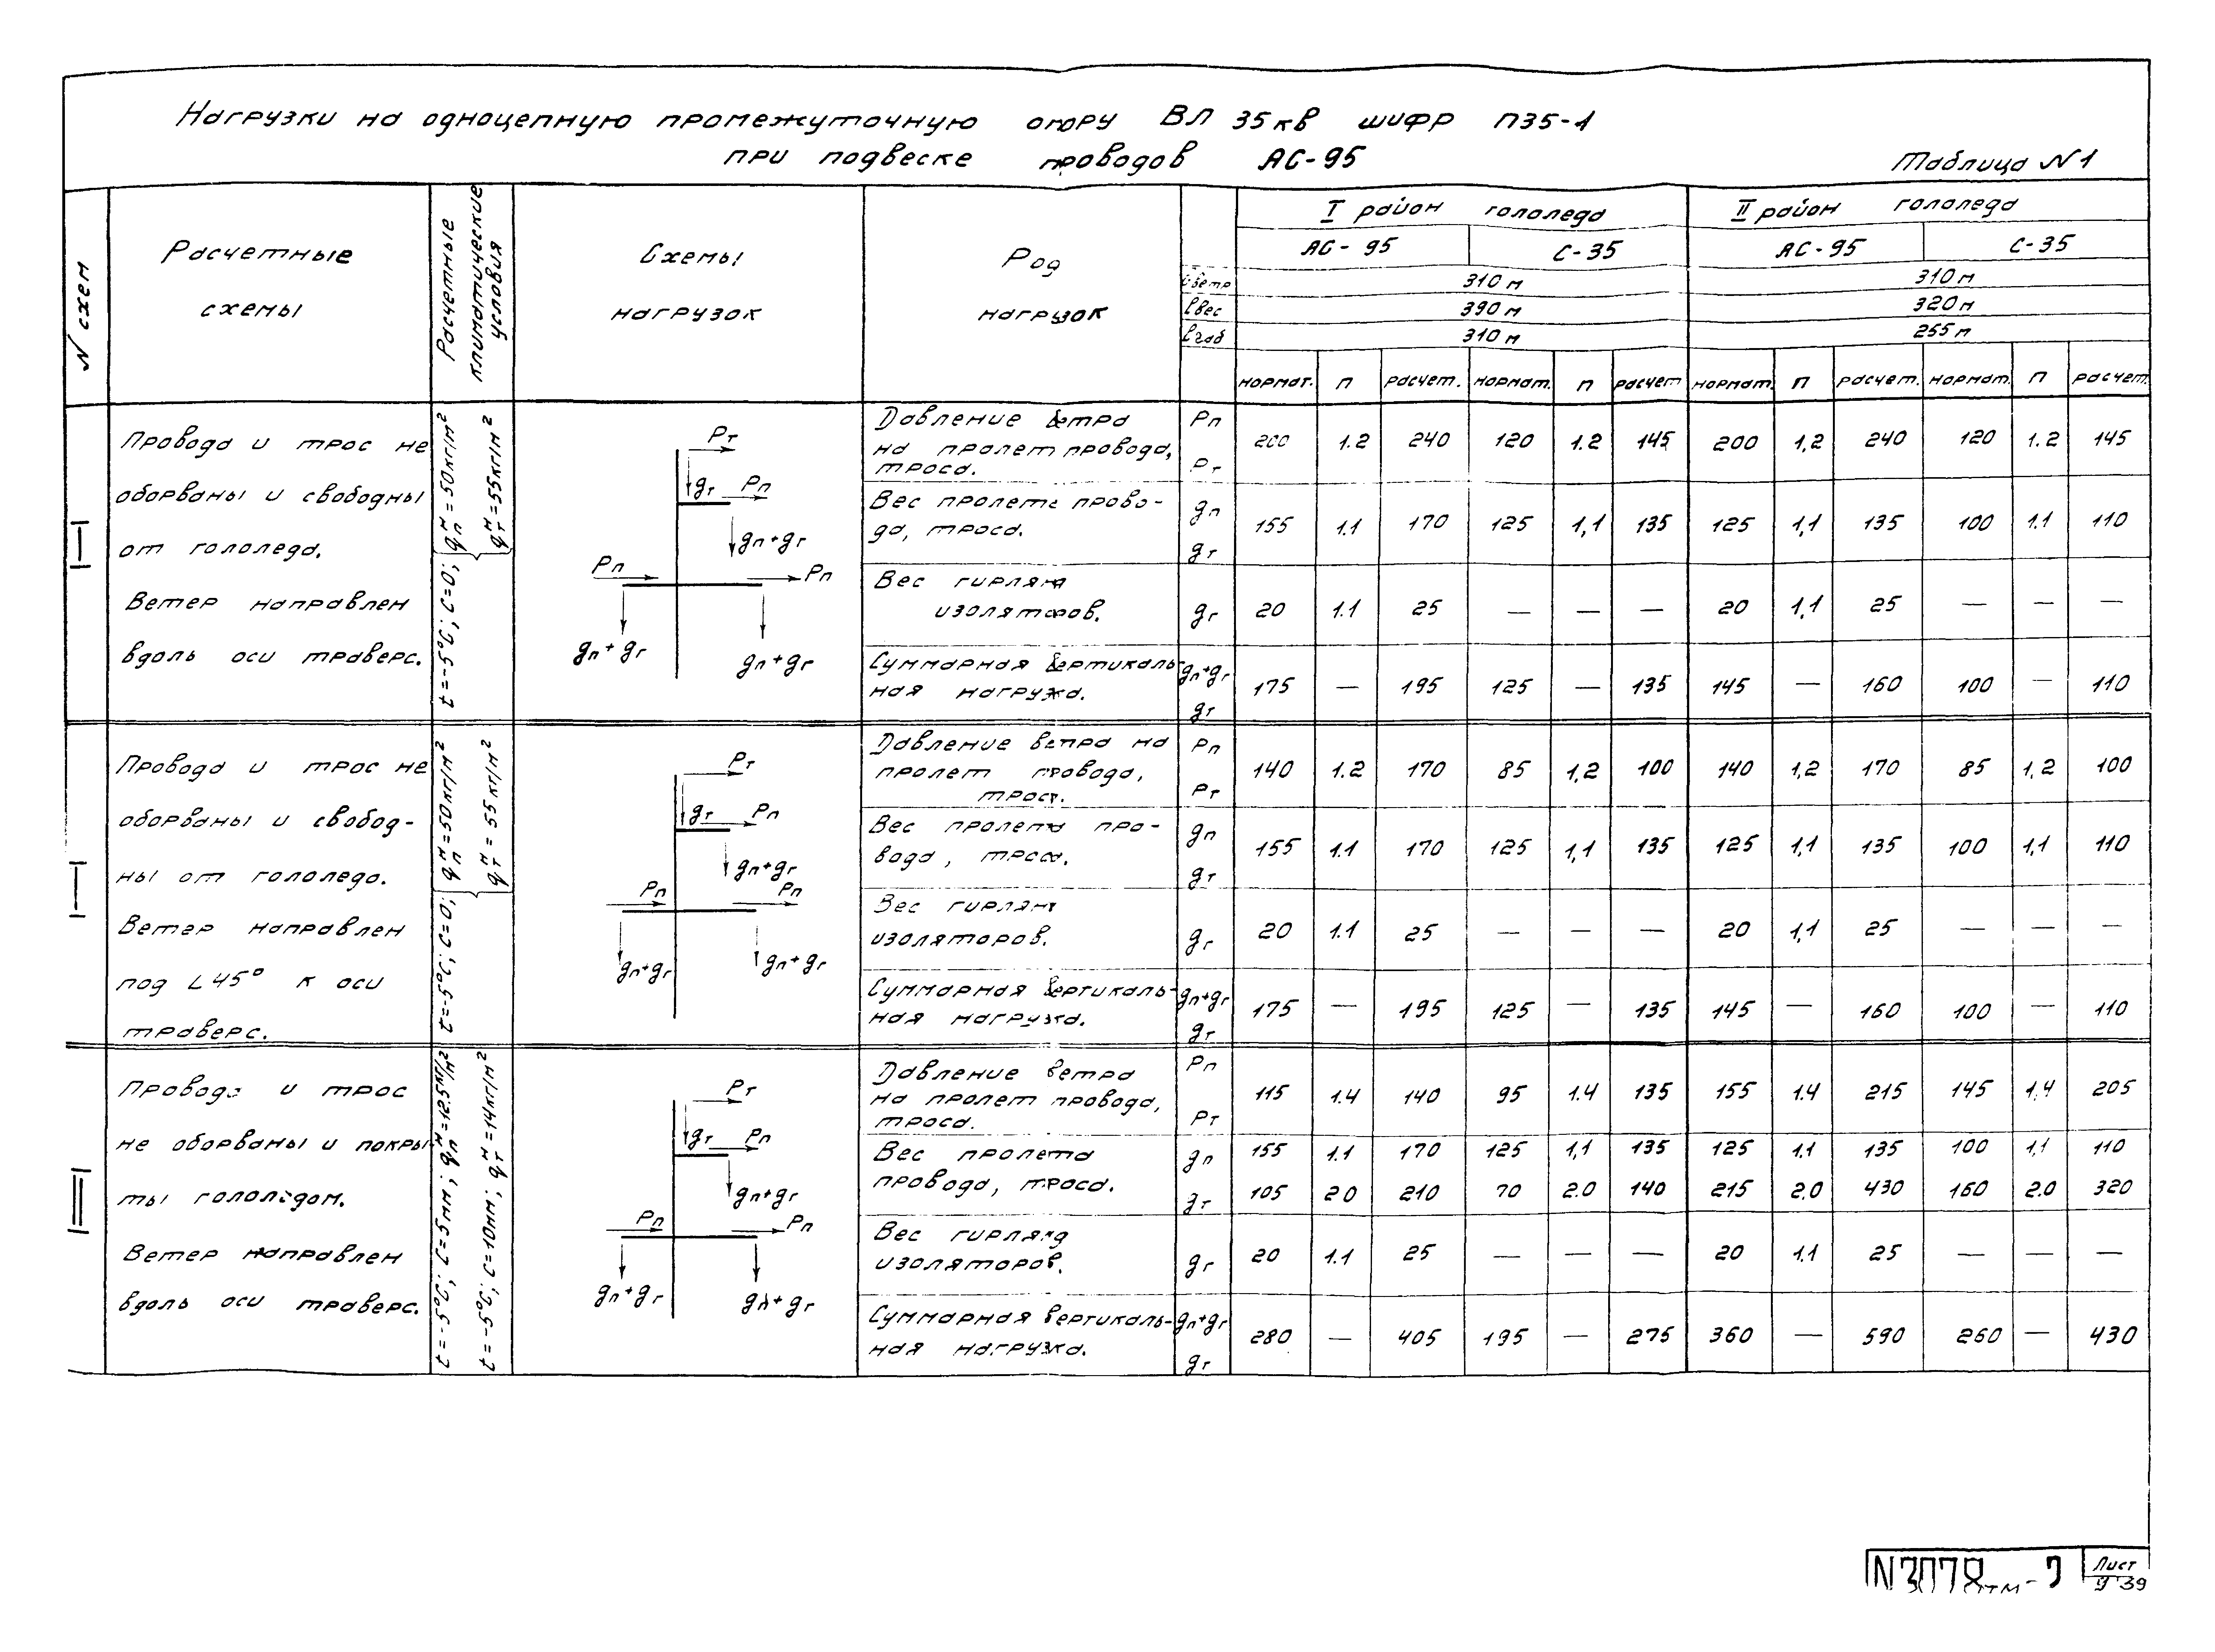 Нагрузки на одноцепную промежуточную опору ВЛ 35кв шифр П35-1
при подвеске проводов АС-95
Таблица N1
N схем
Расчетные схемы
Расчетные климатические условия
Схемы нагрузок
Род нагрузок
I район гололеда
II район гололеда
АС-95 С-35 АС-95 С-35
ℓветр 310м 310м
ℓвес 390м 320м
ℓгаб 310м 255м
нормат. п расчет. нормат. п расчет нормат. п расчет. нормат. п расчет.
I
Провода и трос не
оборваны и свободны
от гололеда.
Ветер направлен
вдоль оси траверс.
t=-5°C; C=0; qнп=50кг/м²
qнт=55кг/м²
Pт
gт Pп
gп+gг
Pп Pп
gп+gг
gп+gг
Давление ветра
на пролет провода,
троса.
Pп
Pт
200 1.2 240 120 1.2 145 200 1,2 240 120 1.2 145
Вес пролета прово-
да, троса.
gп
gт
155 1.1 170 125 1,1 135 125 1,1 135 100 1.1 110
Вес гирлянд
изоляторов.
gг
20 1.1 25 — — — 20 1,1 25 — — —
Суммарная вертикаль-
ная нагрузка.
gп+gг
gт
175 — 195 125 — 135 145 — 160 100 — 110
I
Провода и трос не
оборваны и свобод-
ны от гололеда.
Ветер направлен
под ∠45° к оси
траверс.
t=-5°C; C=0; qнп=50кг/м²
qнт=55кг/м²
Pт
gт Pп
gп+gг
Pп Pп
gп+gг gп+gг
Давление ветра на
пролет провода,
троса.
Pп
Pт
140 1.2 170 85 1,2 100 140 1,2 170 85 1,2 100
Вес пролета про-
вода, троса.
gп
gт
155 1.1 170 125 1,1 135 125 1,1 135 100 1,1 110
Вес гирлянд
изоляторов.
gг
20 1.1 25 — — — 20 1,1 25 — — —
Суммарная вертикаль-
ная нагрузка.
gп+gг
gт
175 — 195 125 — 135 145 — 160 100 — 110
II
Провода и трос
не оборваны и покры
ты гололедом.
Ветер направлен
вдоль оси траверс.
t=-5°C; C=5мм; qнп=12,5кг/м²
t=-5°C; C=10мм; qнт=14кг/м²
Pт
gт Pп
gп+gг
Pп Pп
gп+gг gп+gг
Давление ветра
на пролет провода,
троса.
Pп
Pт
115 1.4 140 95 1.4 135 155 1.4 215 145 1,4 205
Вес пролета
провода, троса.
gп
155 1.1 170 125 1,1 135 125 1.1 135 100 1,1 110
gт
105 2.0 210 70 2.0 140 215 2.0 430 160 2.0 320
Вес гирлянд
изоляторов.
gг
20 1.1 25 — — — 20 1.1 25 — — —
Суммарная вертикаль-
ная нагрузка.
gп+gг
gт
280 — 405 195 — 275 360 — 590 260 — 430
N3078тм-
Лист
39